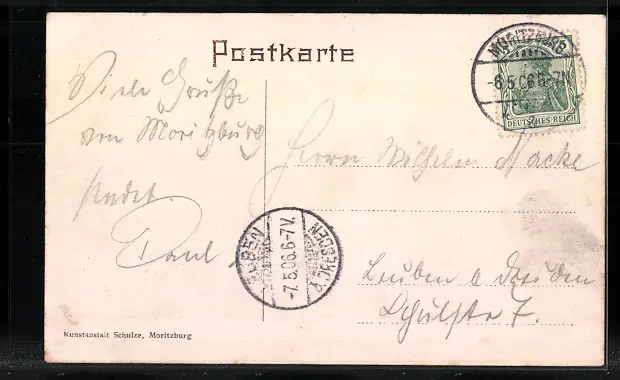 Postkarte
MORITZBURG
-6.5.06.6-7N.
DEUTSCHES REICH
Viele Grüße
von Moritzburg
sendet
Paul
Herrn Wilhelm Macke
LEUBEN
-7.5.06.6-7V.
DRESDEN
Leuben a Dresden
Schulstr 7.
Kunstanstalt Schulze, Moritzburg